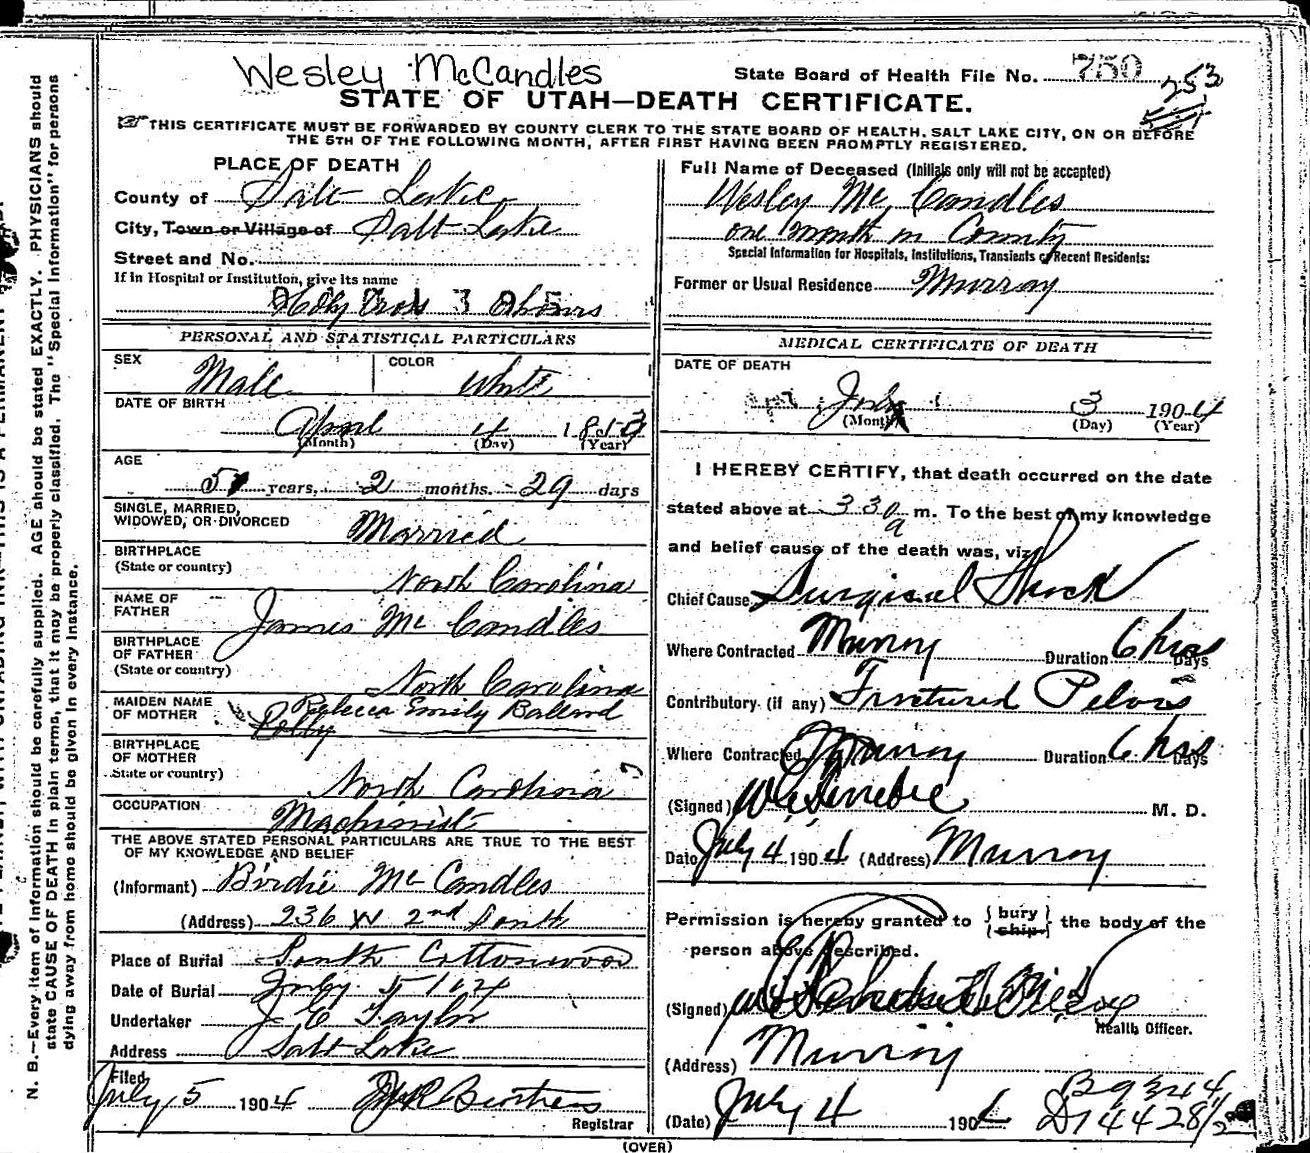 Wesley McCandles
State Board of Health File No. 750
253
STATE OF UTAH—DEATH CERTIFICATE.
THIS CERTIFICATE MUST BE FORWARDED BY COUNTY CLERK TO THE STATE BOARD OF HEALTH, SALT LAKE CITY, ON OR BEFORE
THE 5TH OF THE FOLLOWING MONTH, AFTER FIRST HAVING BEEN PROMPTLY REGISTERED.
PLACE OF DEATH
County of Salt Lake
City, Town or Village of Salt Lake
Street and No.
If in Hospital or Institution, give its name
Holy Cross 3 hours
PERSONAL AND STATISTICAL PARTICULARS
SEX Male COLOR White
DATE OF BIRTH
April 4 1853
(Month) (Day) (Year)
AGE
51 years, 2 months. 29 days
SINGLE, MARRIED,
WIDOWED, OR DIVORCED Married
BIRTHPLACE
(State or country) North Carolina
NAME OF
FATHER James Mc Candles
BIRTHPLACE
OF FATHER
(State or country) North Carolina
MAIDEN NAME
OF MOTHER Rebecca Emily Ballard
BIRTHPLACE
OF MOTHER
State or country) North Carolina
OCCUPATION Machinist
THE ABOVE STATED PERSONAL PARTICULARS ARE TRUE TO THE BEST
OF MY KNOWLEDGE AND BELIEF
(Informant) Birdie Mc Candles
(Address) 236 W 2nd South
Place of Burial South Cottonwood
Date of Burial July 5 1904
Undertaker Taylor
Address Salt Lake
Filed
July 5 1904
Registrar
Full Name of Deceased (Initials only will not be accepted)
Wesley Mc Candles
one month in County
Special Information for Hospitals, Institutions, Transients or Recent Residents:
Former or Usual Residence Murray
MEDICAL CERTIFICATE OF DEATH
DATE OF DEATH
July 3 1904
(Month) (Day) (Year)
I HEREBY CERTIFY, that death occurred on the date
stated above at 330 a m. To the best of my knowledge
and belief cause of the death was, viz
Chief Cause, Surgical Shock
Where Contracted Murray Duration 6 hrs Days
Contributory (if any) Fractured Pelvis
Where Contracted Murray Duration 6 hrs Days
(Signed) M. D.
Date July 4 1904 (Address) Murray
Permission is hereby granted to {bury ship} the body of the
person above described.
(Signed)
Health Officer.
(Address) Murray
(Date) July 4 1904
D144281/2
(OVER)
N. B.—Every item of information should be carefully supplied. AGE should be stated EXACTLY. PHYSICIANS should
state CAUSE OF DEATH in plain terms, that it may be properly classified. The "Special Information" for persons
dying away from home should be given in every instance.